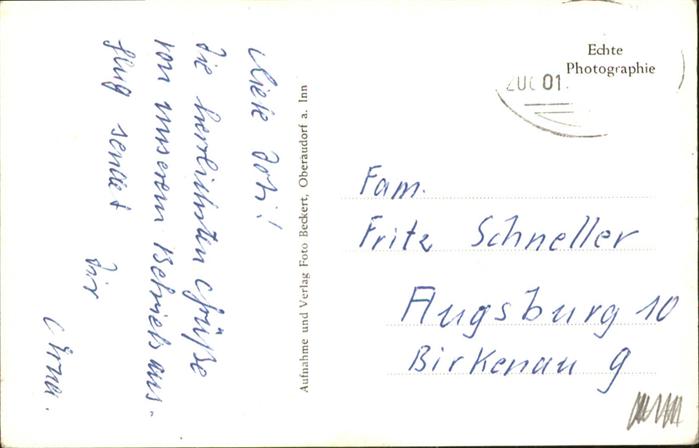 Echte
Photographie
ZUG 01
Liebe Doti!
die herrlichsten Grüße
von unserem Betriebsaus-
flug sendet
Dir
Erna.
Aufnahme und Verlag Foto Beckert, Oberaudorf a. Inn
Fam.
Fritz Schneller
Augsburg 10
Birkenau 9